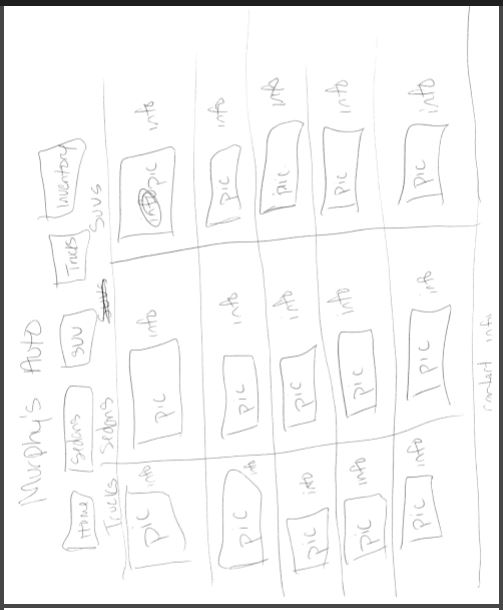 Murphy's Auto
Home Sedans SUV Trucks Inventory
Trucks Sedans SUVs
pic info pic info pic info
pic info pic info pic info
pic info pic info pic info
pic info pic info pic info
pic info pic info pic info
contact info